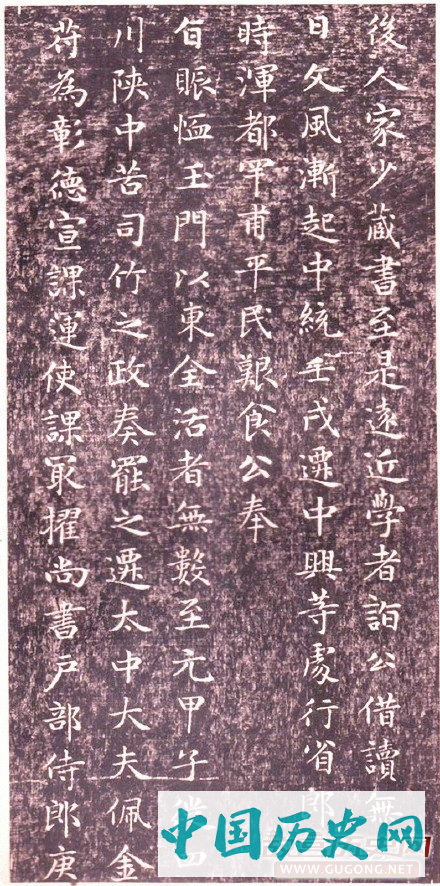 後人家少藏書至是遠近學者詣公借讀無
日文風漸起中統壬戌遷中興等處行省郎
時渾都罕甫平民艱食公奉
旨賑恤玉門以東全活者無數至元甲子四
川陝中苦司竹之政奏罷之遷太中大夫佩金
苻為彰德宣課運使課最擢尚書戶部侍郎庚
中国历史网
WWW.GUGONG.NET